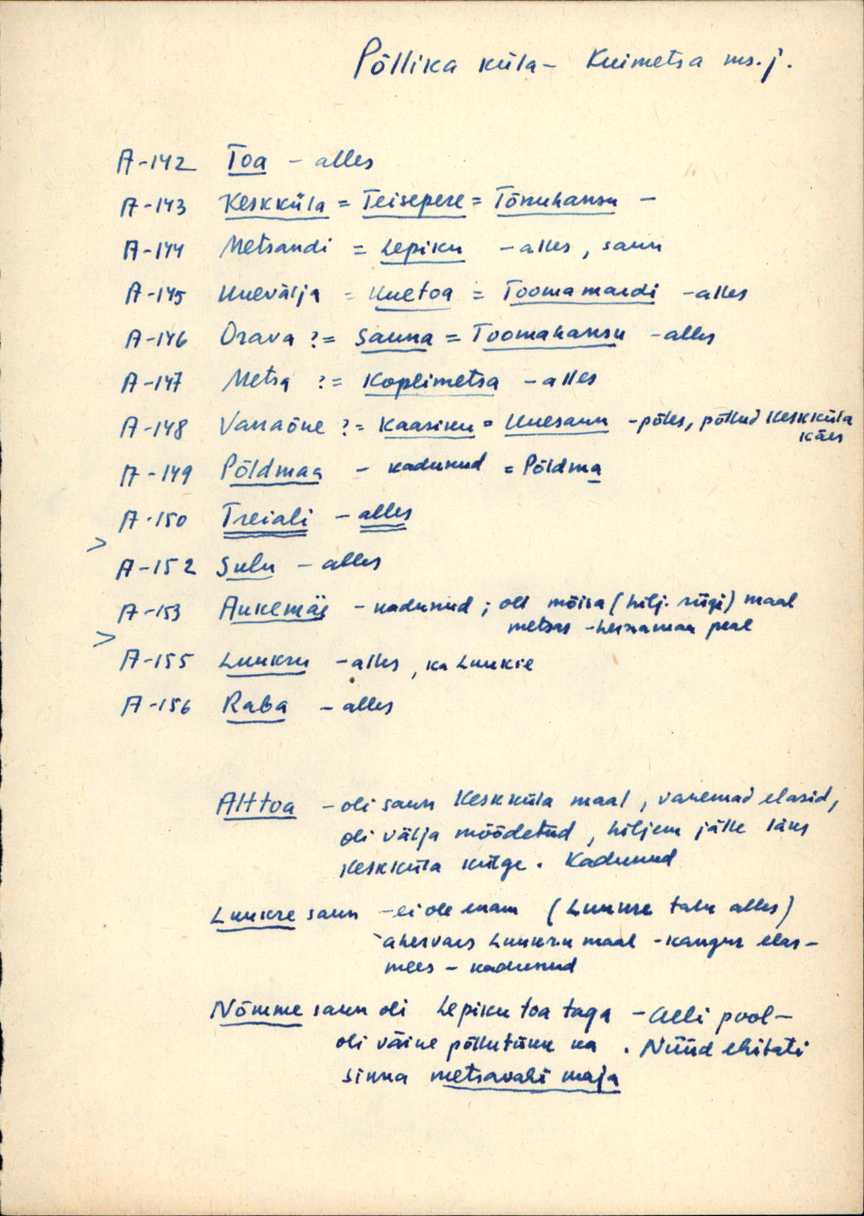 Põllika küla - Kuimetsa ms.j.
A-142 Toa - alles
A-143 Keskküla = Teisepere = Tõnuhansu -
A-144 Metsandi = Lepiku - alles, saun
A-145 Uuevälja = Uuetoa = Toomamardi - alles
A-146 Orava ?= Sauna = Toomahansu - alles
A-147 Metsa ?= Koplimetsa - alles
A-148 Vanaõue ?= Kaasiku = Uuesaun - põles, põllud Keskküla
käes
A-149 Põldmaa - kadunud = Põldma
A-150 Treiali - alles
>
A-152 Sulu - alles
A-153 Aukemäe - kadunud; oli mõisa (hilj. riigi) maal
metsas - heinamaa peal
>
A-155 Luukru - alles, ka Luukre
A-156 Raba - alles
Alttoa - oli saun Keskküla maal, vanemad elasid,
oli välja mõõdetud, hiljem jälle läks
Keskküla külge. Kadunud
Luukre saun - ei ole enam (Luukre talu alles)
ahervars Luukru maal - kangur elas -
mees - kadunud
Nõmme saun oli Lepiku toa taga - Aelli pool -
oli väine põllutükk ka. Nüüd ehitati
sinna metsavahi maja